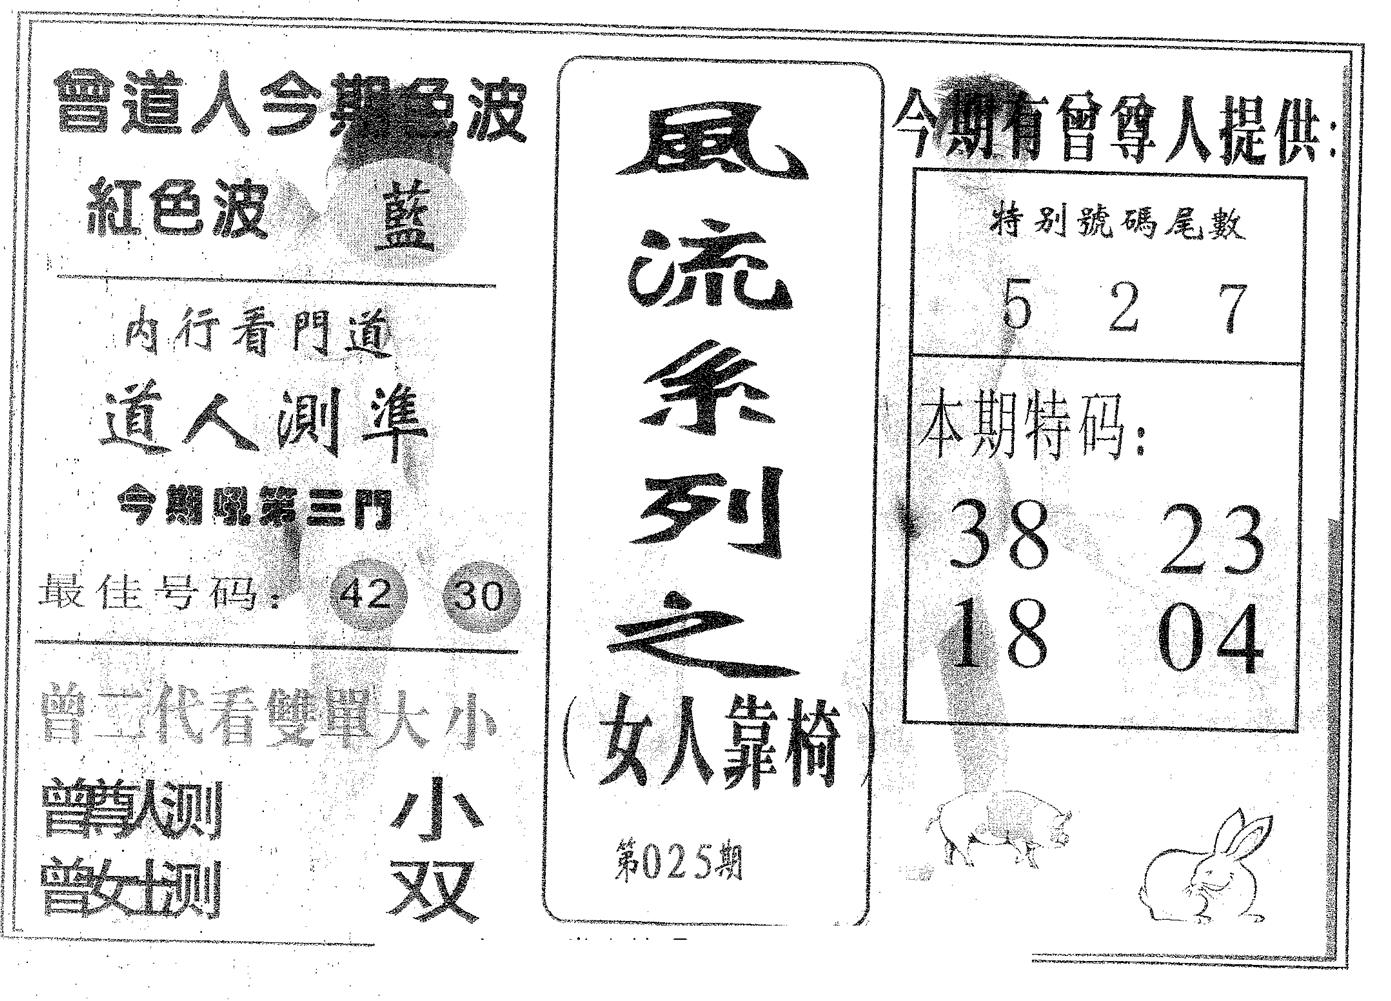 曾道人今期色波
紅色波 藍
内行看門道
道人測準
今期吼第三門
最佳号码： 42 30
曾二代看雙單大小
曾尊人测 小
曾女士测 双
風流系列之
（女人靠椅）
第025期
今期有曾尊人提供：
特别號碼尾數
5 2 7
本期特码：
38 23
18 04